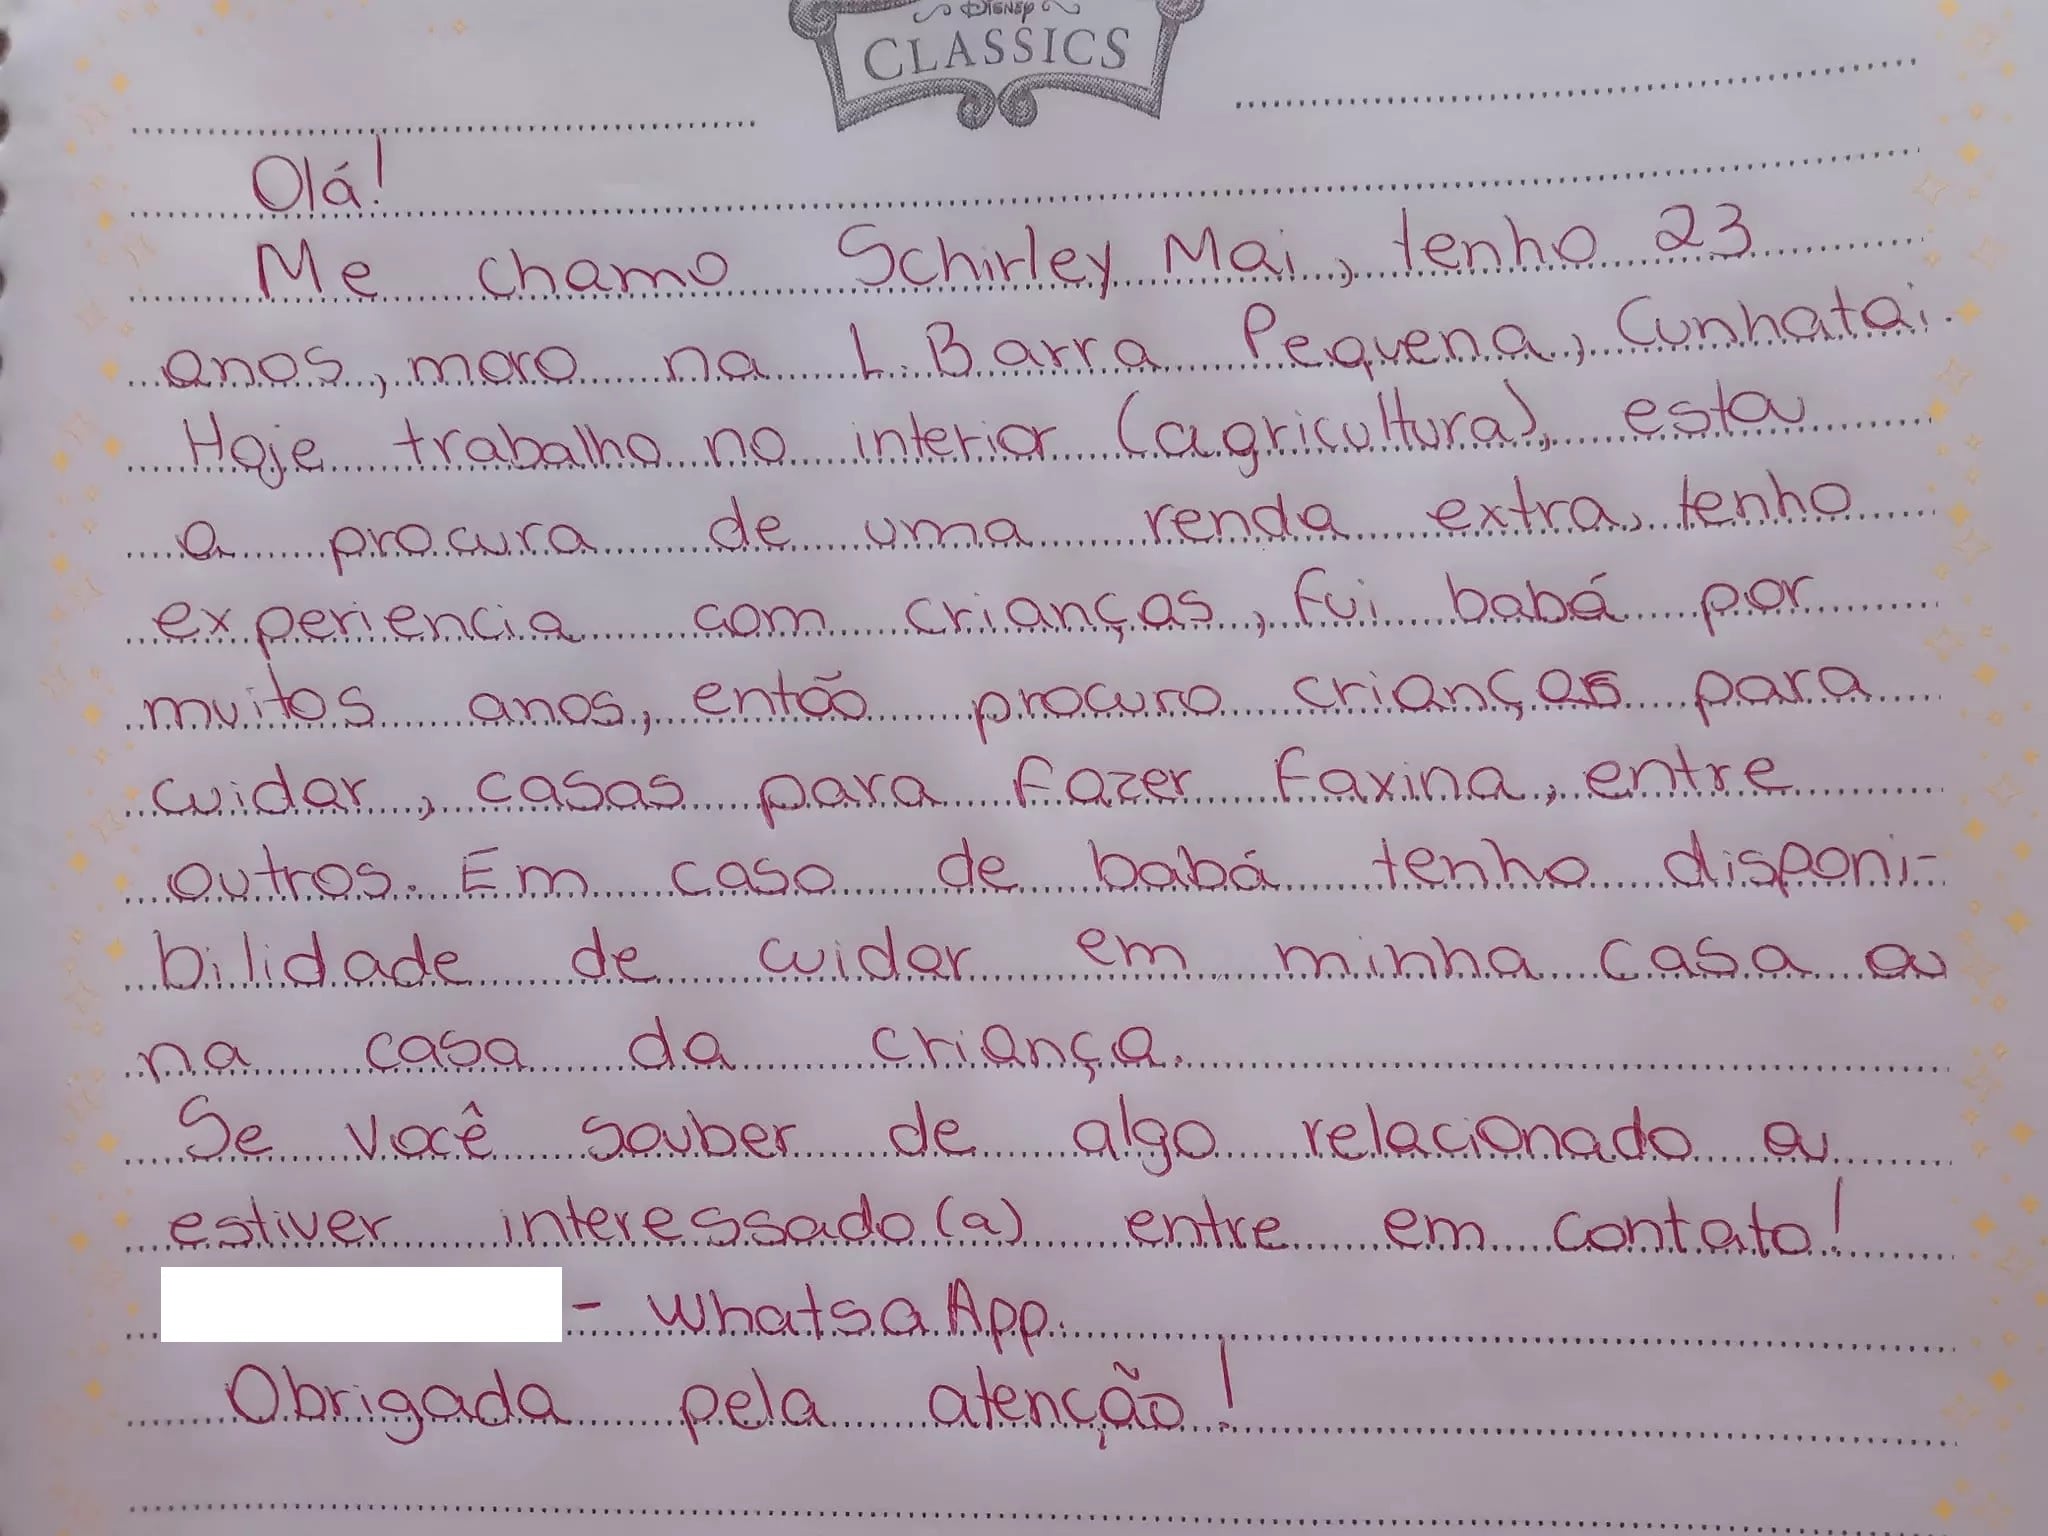 Disney
CLASSICS
Olá!
Me chamo Schirley Mai, tenho 23
anos, moro na L. Barra Pequena, Cunhataí.
Hoje trabalho no interior (agricultura), estou
a procura de uma renda extra, tenho
experiencia com crianças, fui babá por
muitos anos, então procuro crianças para
cuidar, casas para fazer faxina, entre
outros. Em caso de babá tenho disponi-
bilidade de cuidar em minha casa ou
na casa da criança.
Se você souber de algo relacionado ou
estiver interessado(a) entre em contato!
- WhatsaApp.
Obrigada pela atenção!